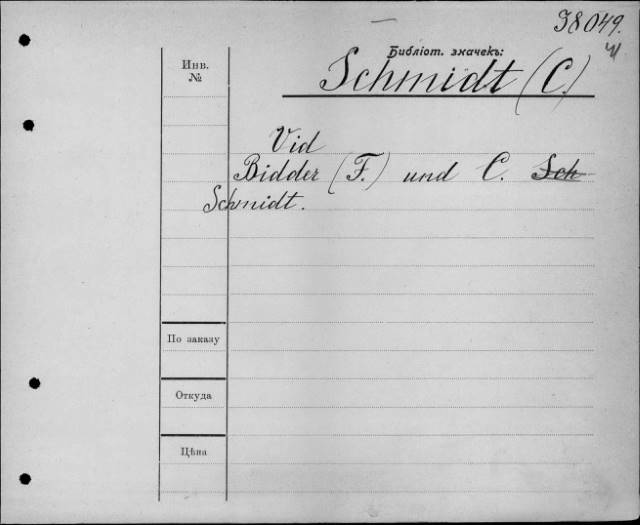 38049.
Библіот. значекъ:
Инв.
№
Schmidt (C.)
Vid
Bidder (F.) und C. Sch
Schmidt.
По заказу
Откуда
Цѣна